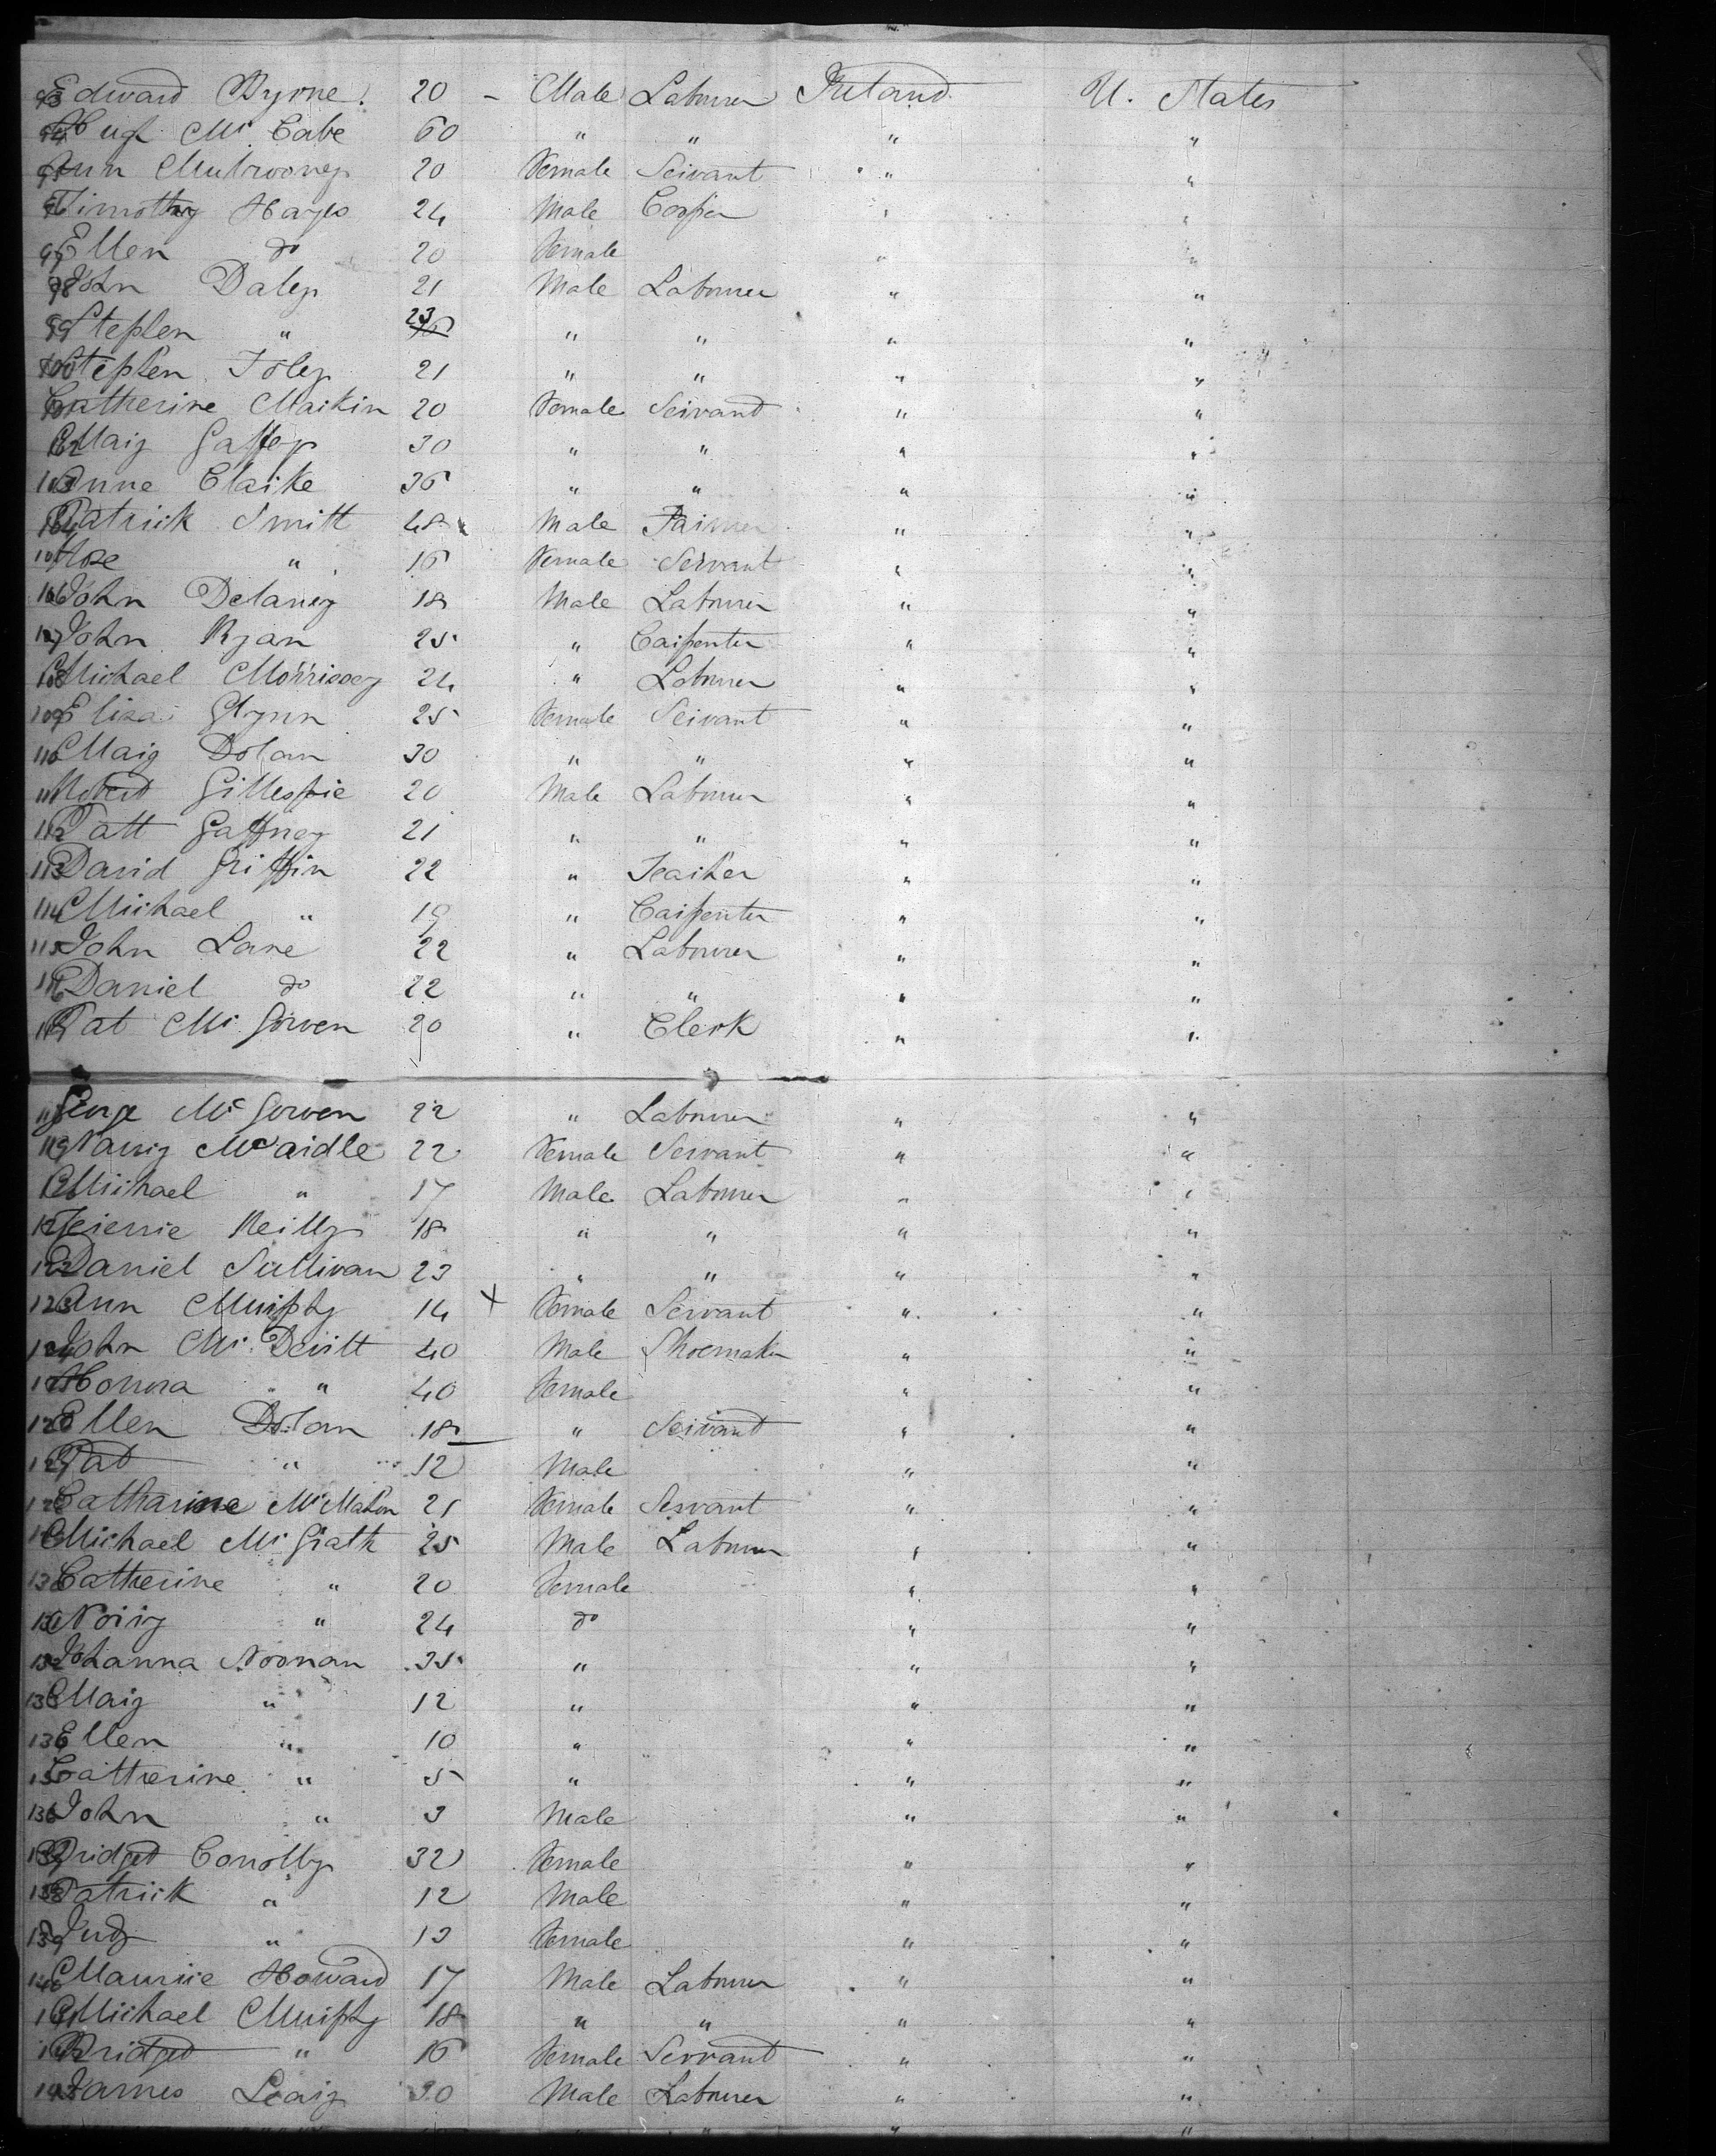 93 Edward Byrne. 20 - Male Labourer Ireland U. States
94 Hugh Mc Cabe 60 " " " "
95 Ann Mulrooney 20 Female Servant " "
96 Timothy Hayes 24 Male Cooper " "
97 Ellen do 20 Female " "
98 John Daley 21 Male Labourer " "
99 Stephen " 23 " " " "
100 Stephen Foley 21 " " " "
101 Catherine Markin 20 Female Servant " "
102 Mary Gaffey 30 " " " "
103 Anne Clarke 36 " " " "
104 Patrick Smith 48 Male Farmer " "
105 Rose " 16 Female Servant " "
106 John Delaney 18 Male Labourer " "
107 John Ryan 25 " Carpenter " "
108 Michael Morrissey 24 " Labourer " "
109 Eliza Glynn 25 Female Servant " "
110 Mary Dolan 30 " " " "
111 Robert Gillespie 20 Male Labourer " "
112 Patt Gaffney 21 " " " "
113 David Griffin 22 " Teacher " "
114 Michael " 19 " Carpenter " "
115 John Lane 22 " Labourer " "
116 Daniel do 22 " " " "
117 Pat Mc Gowen 20 " Clerk " "
118 George Mc Gowen 22 " Labourer " "
119 Nancy McArdle 22 Female Servant " "
120 Michael " 17 Male Labourer " "
121 Reilly 18 " " " "
122 Daniel Sullivan 23 " " " "
123 Ann Murphy 14 x Female Servant " "
124 John Mc Devitt 40 Male Shoemaker " "
125 Honora " 40 Female " "
126 Ellen Dolan 18 " Servant " "
127 Pat " 12 Male " "
128 Catharine McMahon 21 Female Servant " "
129 Michael Mc Grath 25 Male Labourer " "
130 Catherine " 20 Female " "
131 Norry " 24 do " "
132 Johanna Noonan 35 " " "
133 Mary " 12 " " "
134 Ellen " 10 " " "
135 Catherine " 5 " " "
136 John " 3 Male " "
137 Bridget Conolly 32 Female " "
138 Patrick " 12 Male " "
139 Judy " 13 Female " "
140 Maurice Howard 17 Male Labourer " "
141 Michael Murphy 18 " " " "
142 Bridget " 16 Female Servant " "
143 James Leary 30 Male Labourer " "